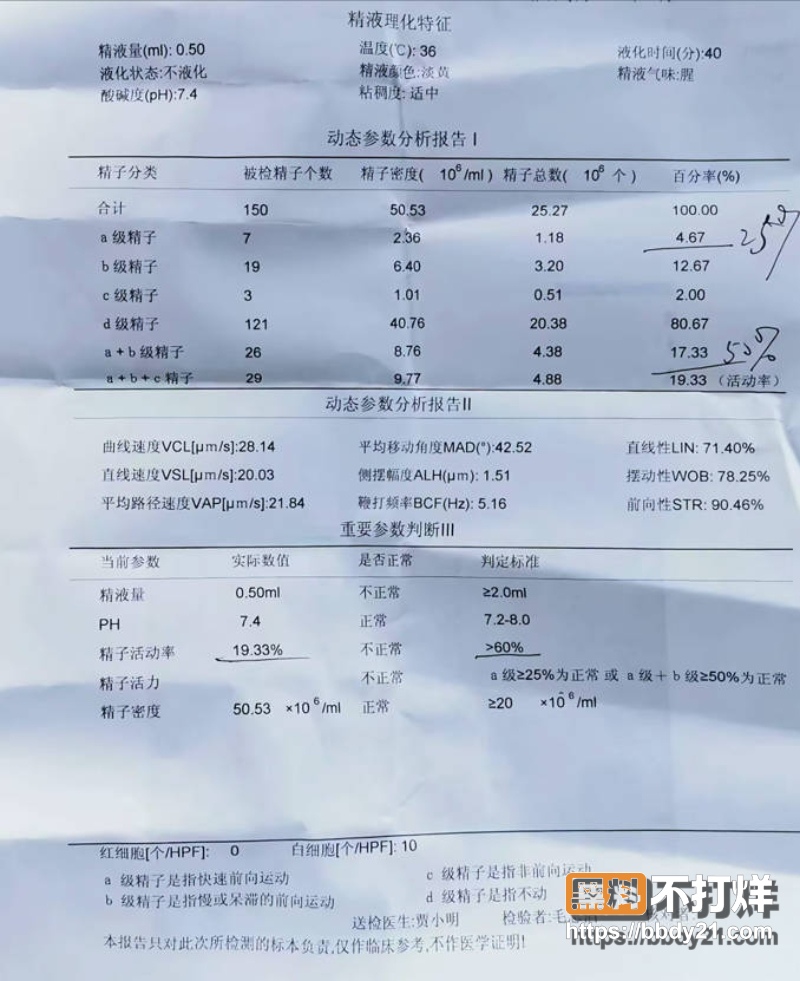 精液理化特征
精液量(ml): 0.50 温度(℃): 36 液化时间(分):40
液化状态:不液化 精液颜色:淡黄 精液气味:腥
酸碱度(pH):7.4 粘稠度: 适中
动态参数分析报告 I
精子分类 被检精子个数 精子密度( 10⁶/ml) 精子总数( 10⁶ 个) 百分率(%)
合计 150 50.53 25.27 100.00
a 级精子 7 2.36 1.18 4.67 25%
b 级精子 19 6.40 3.20 12.67
c 级精子 3 1.01 0.51 2.00
d 级精子 121 40.76 20.38 80.67
a+b 级精子 26 8.76 4.38 17.33 50%
a+b+c 精子 29 9.77 4.88 19.33 (活动率)
动态参数分析报告II
曲线速度VCL[μm/s]:28.14 平均移动角度MAD(°):42.52 直线性LIN: 71.40%
直线速度VSL[μm/s]:20.03 侧摆幅度ALH(μm): 1.51 摆动性WOB: 78.25%
平均路径速度VAP[μm/s]:21.84 鞭打频率BCF(Hz): 5.16 前向性STR: 90.46%
重要参数判断III
当前参数 实际数值 是否正常 判定标准
精液量 0.50ml 不正常 ≥2.0ml
PH 7.4 正常 7.2-8.0
精子活动率 19.33% 不正常 >60%
精子活力 不正常 a 级≥25%为正常 或 a 级+ b 级≥50%为正常
精子密度 50.53 ×10⁶/ml 正常 ≥20 ×10⁶/ml
红细胞[个/HPF]: 0 白细胞[个/HPF]: 10
a 级精子是指快速前向运动 c 级精子是指非前向运动
b 级精子是指慢或呆滞的前向运动 d 级精子是指不动
送检医生:贾小明 检验者:毛
本报告只对此次所检测的标本负责,仅作临床参考,不作医学证明!
黑料不打烊
https://bbdy21.com